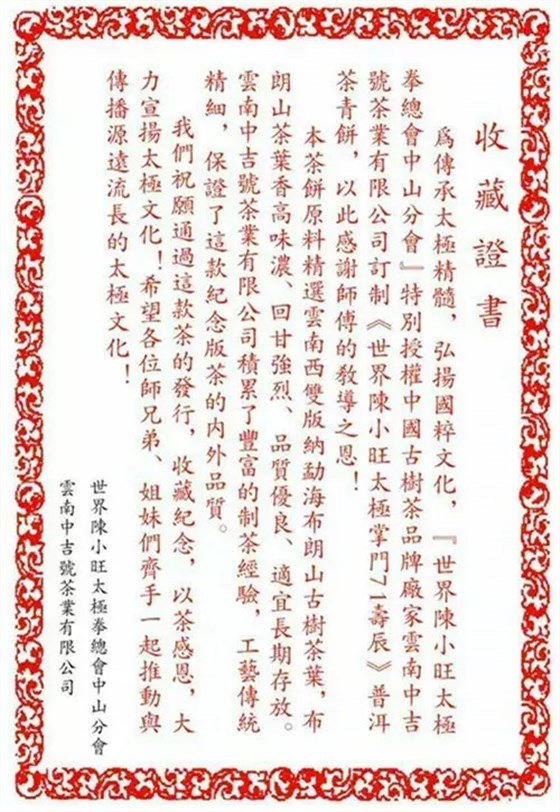 收藏證書
爲傳承太極精髓，弘揚國粹文化，『世界陳小旺太極
拳總會中山分會』特別授權中國古樹茶品牌廠家雲南中吉
號茶業有限公司訂制《世界陳小旺太極掌門71壽辰》普洱
茶青餅，以此感謝師傅的教導之恩！
本茶餅原料精選雲南西雙版納勐海布朗山古樹茶葉，布
朗山茶葉香高味濃、回甘強烈、品質優良、適宜長期存放。
雲南中吉號茶業有限公司積累了豐富的制茶經驗，工藝傳統
精細，保證了這款紀念版茶的内外品質。
我們祝願通過這款茶的發行，收藏紀念，以茶感恩，大
力宣揚太極文化！希望各位師兄弟、姐妹們齊手一起推動與
傳播源遠流長的太極文化！
世界陳小旺太極拳總會中山分會
雲南中吉號茶業有限公司